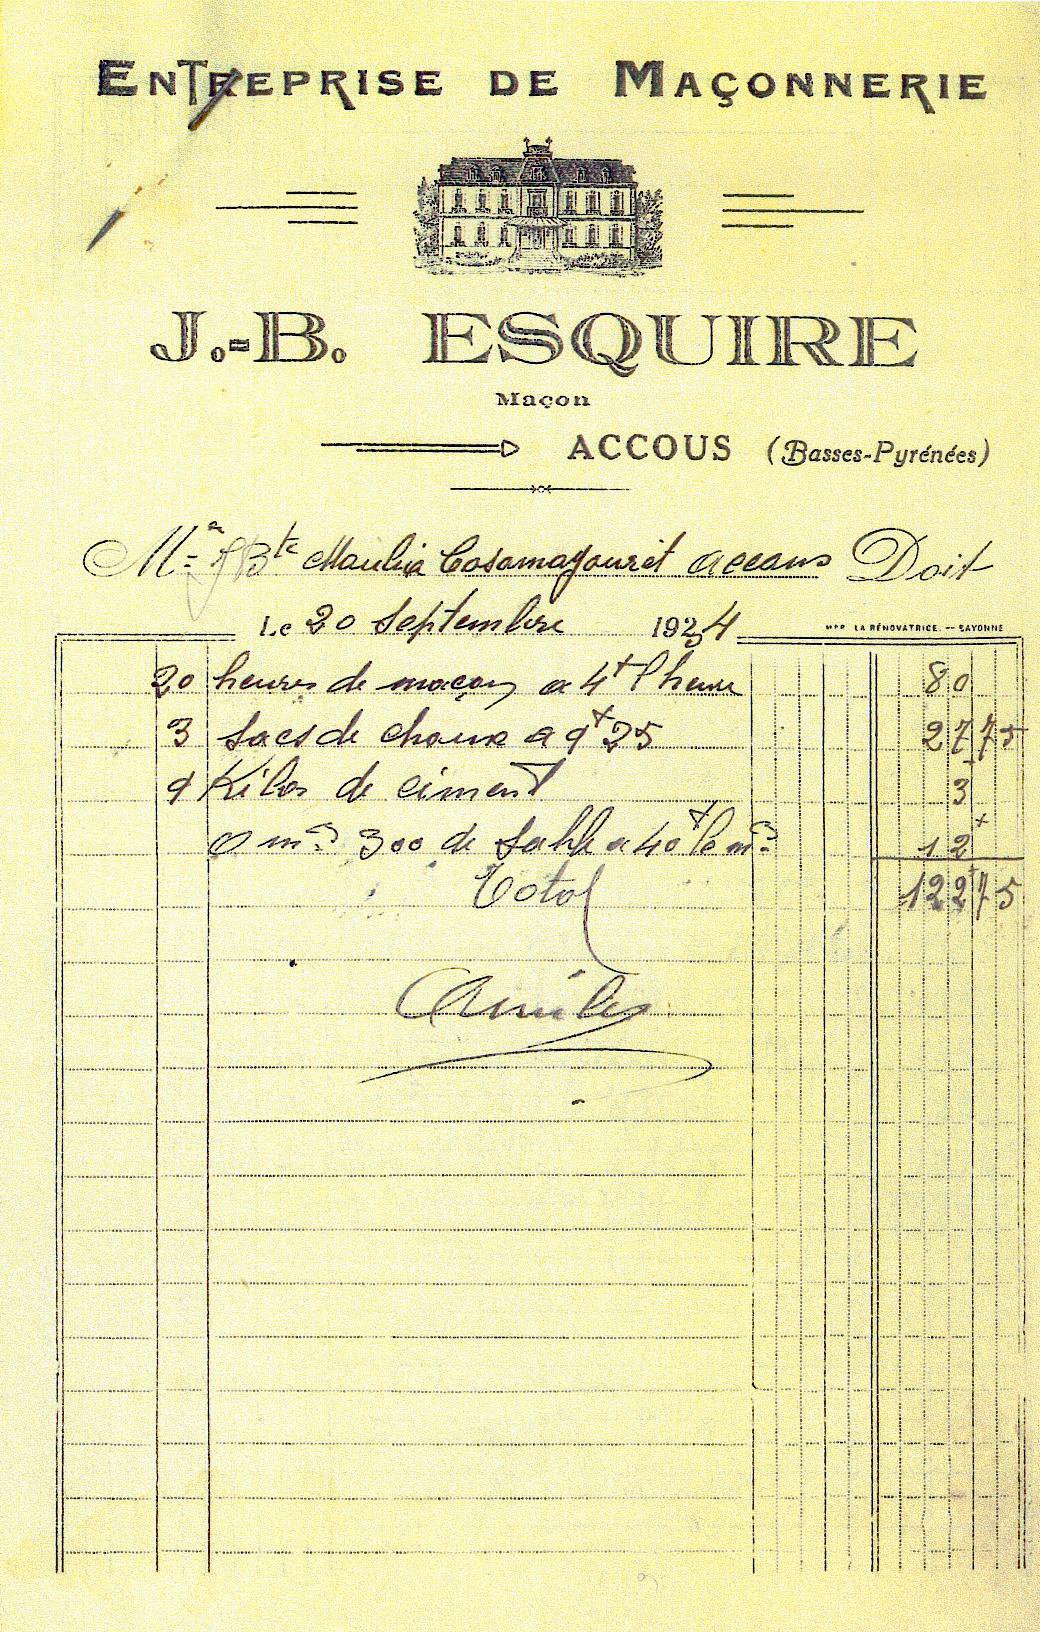 ENTREPRISE DE MAÇONNERIE
J.-B. ESQUIRE
Maçon
ACCOUS (Basses-Pyrénées)
Mr JBte Maulia Casamayouret accous Doit
Le 20 Septembre 1934
IMP. LA RÉNOVATRICE. -- BAYONNE
20 heures de maçon a 4f l'heure 80
3 sacs de chaux a 9f25 27 75
9 Kilos de ciment 3
0 m3 300 de sable a 40f le m3 12
Total 122f75